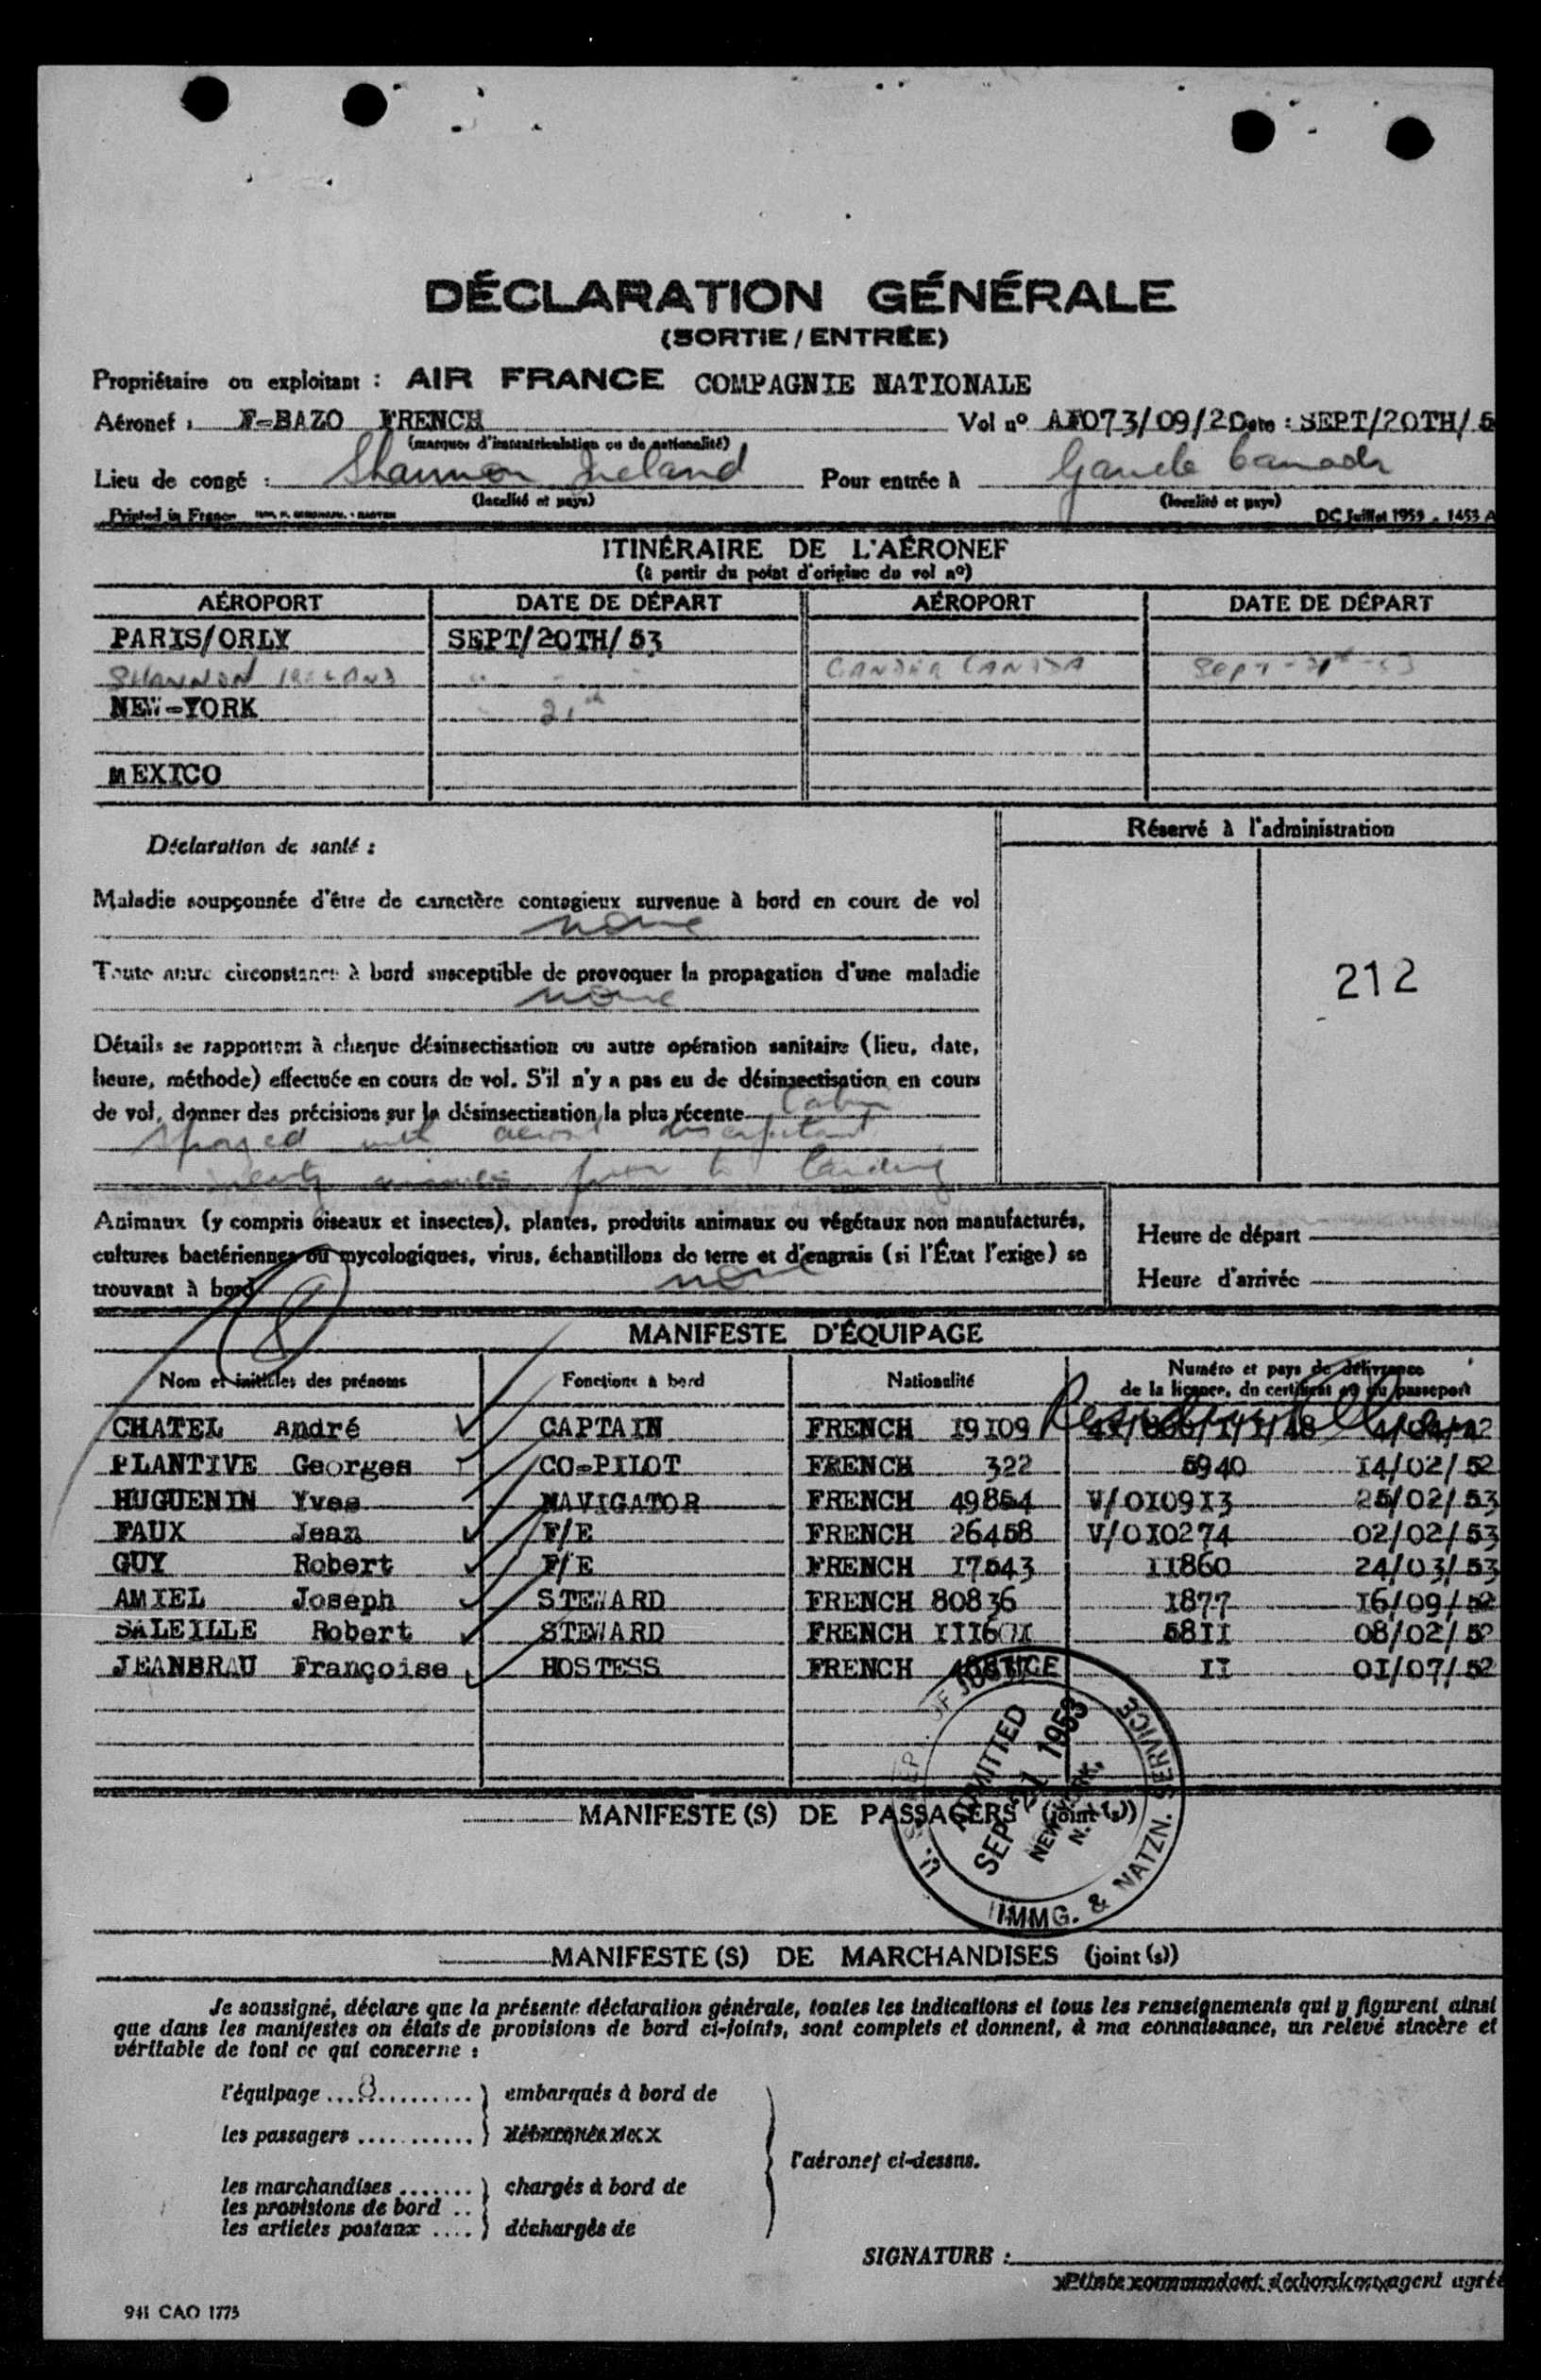 DÉCLARATION GÉNÉRALE
(SORTIE / ENTRÉE)
Propriétaire ou exploitant : AIR FRANCE COMPAGNIE NATIONALE
Aéronef : F-BAZO FRENCH Vol nº AF073/09/20 Date : SEPT/20TH/ 5
(marques d'immatriculation ou de nationalité)
Lieu de congé : Shannon Ireland Pour entrée à Gander Canada
(localité et pays) (localité et pays)
Printed in France DC Juillet 1953 - 1453 A
ITINÉRAIRE DE L'AÉRONEF
(à partir du point d'origine du vol nº)
AÉROPORT DATE DE DÉPART AÉROPORT DATE DE DÉPART
PARIS/ORLY SEPT/20TH/ 53
SHANNON IRELAND " - - GANDER CANADA Sept - 21st - 53
NEW-YORK 21st
MEXICO
Déclaration de santé :
Réservé à l'administration
Maladie soupçonnée d'être de caractère contagieux survenue à bord en cours de vol
none
Toute autre circonstance à bord susceptible de provoquer la propagation d'une maladie
none
212
Détails se rapportant à chaque désinsectisation ou autre opération sanitaire (lieu, date,
heure, méthode) effectuée en cours de vol. S'il n'y a pas eu de désinsectisation en cours
de vol, donner des précisions sur la désinsectisation la plus récente Cabin
sprayed with aerosol
minutes prior to landing
Animaux (y compris oiseaux et insectes), plantes, produits animaux ou végétaux non manufacturés,
cultures bactériennes ou mycologiques, virus, échantillons de terre et d'engrais (si l'État l'exige) se
trouvant à bord none
Heure de départ
Heure d'arrivée
8
MANIFESTE D'ÉQUIPAGE
Nom et initiales des prénoms Fonctions à bord Nationalité Numéro et pays de délivrance
de la licence, du certificat ou du passeport
CHATEL André CAPTAIN FRENCH 19109
PLANTIVE Georges CO-PILOT FRENCH 322 5940 14/02/52
HUGUENIN Yves NAVIGATOR FRENCH 49854 V/010913 25/02/53
FAUX Jean F/E FRENCH 26458 V/010274 02/02/53
GUY Robert F/E FRENCH 17543 11860 24/03/53
AMIEL Joseph STEWARD FRENCH 80836 1877 16/09/52
SALEILLE Robert STEWARD FRENCH III601 5811 08/02/52
JEANBRAU Françoise HOSTESS FRENCH II 01/07/52
U. S. DEPT. OF JUSTICE
ADMITTED
SEP 21 1953
NEW YORK,
N.Y.
IMMG. & NATZN. SERVICE
MANIFESTE (S) DE PASSAGERS (joint (s))
MANIFESTE (S) DE MARCHANDISES (joint (s))
Je soussigné, déclare que la présente déclaration générale, toutes les indications et tous les renseignements qui y figurent ainsi
que dans les manifestes ou états de provisions de bord ci-joints, sont complets et donnent, à ma connaissance, un relevé sincère et
véritable de tout ce qui concerne :
l'équipage ...8.......... } embarqués à bord de
les passagers ........... }
l'aéronef ci-dessus.
les marchandises ....... } chargés à bord de
les provisions de bord ..
les articles postaux .... } déchargés de
SIGNATURE :
agent agréé
941 CAO 1775